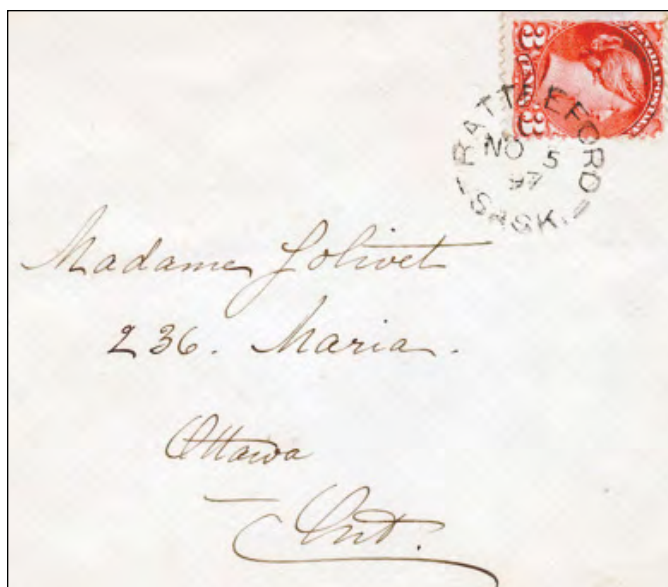 3 CENTS 3
BATTLEFORD
NO 5
97
SASK.
Madame Jolivet
236. Maria.
Ottawa
Ont.